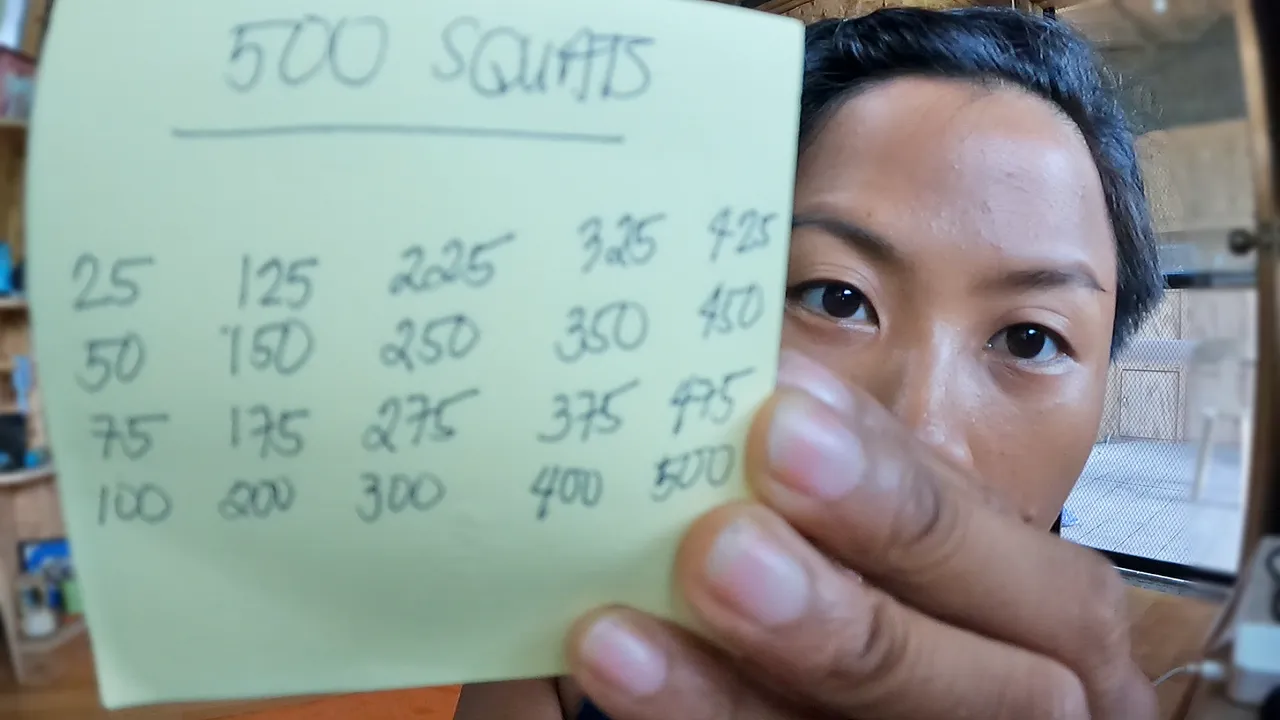 500 SQUATS
25 125 225 325 425
50 150 250 350 450
75 175 275 375 475
100 200 300 400 500